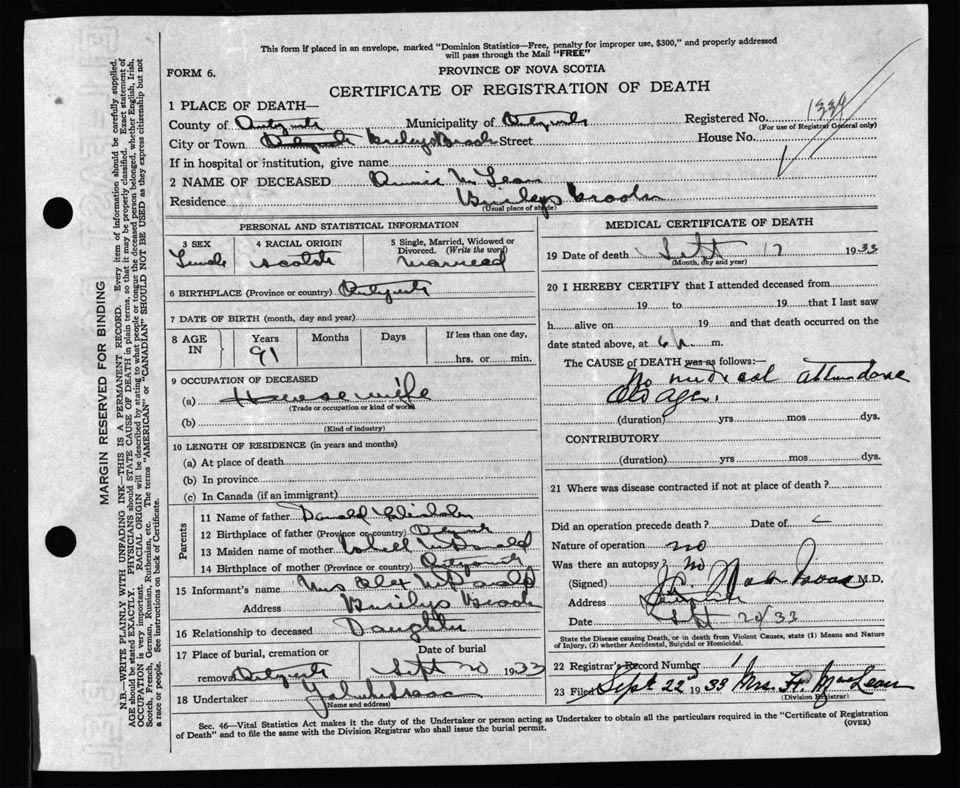 This form if placed in an envelope, marked "Dominion Statistics—Free, penalty for improper use, $300," and properly addressed
will pass through the Mail "FREE"
FORM 6.
PROVINCE OF NOVA SCOTIA
CERTIFICATE OF REGISTRATION OF DEATH
1 PLACE OF DEATH—
Registered No. 1339
(For use of Registrar General only)
County of Antigonish Municipality of Antigonish
City or Town Street House No.
If in hospital or institution, give name
2 NAME OF DECEASED Annie McLean
Residence Baileys Brook
(Usual place of abode)
PERSONAL AND STATISTICAL INFORMATION
3 SEX 4 RACIAL ORIGIN 5 Single, Married, Widowed or
Divorced. (Write the word)
Female Scotch Married
6 BIRTHPLACE (Province or country) Antigonish
7 DATE OF BIRTH (month, day and year)
8 AGE IN Years Months Days If less than one day,
91 hrs. or min.
9 OCCUPATION OF DECEASED
(a) Housewife
(Trade or occupation or kind of work)
(b)
(Kind of industry)
10 LENGTH OF RESIDENCE (in years and months)
(a) At place of death
(b) In province
(c) In Canada (if an immigrant)
Parents
11 Name of father Donald Chisholm
12 Birthplace of father (Province or country)
13 Maiden name of mother McDonald
14 Birthplace of mother (Province or country)
15 Informant's name Mrs Alex McDonald
Address Baileys Brook
16 Relationship to deceased Daughter
17 Place of burial, cremation or Date of burial
removal Antigonish Sept 20 1933
18 Undertaker
(Name and address)
MEDICAL CERTIFICATE OF DEATH
19 Date of death Sept 17 1933
(Month, day and year)
20 I HEREBY CERTIFY that I attended deceased from
19 to 19 that I last saw
h alive on 19 and that death occurred on
the date stated above, at 6 p.m.
The CAUSE of DEATH was as follows:—
No medical attendance
Old age.
(duration) yrs mos dys.
CONTRIBUTORY
(duration) yrs mos dys.
21 Where was disease contracted if not at place of death?
Did an operation precede death? Date of
Nature of operation no
Was there an autopsy? no
(Signed) M.D.
Address
Date Sept 20/33
State the Disease causing Death, or in death from Violent Causes, state (1) Means and Nature
of Injury, (2) whether Accidental, Suicidal or Homicidal.
22 Registrar's Record Number
23 Filed Sept 22nd 1933 Mrs. MacLean
(Division Registrar)
Sec. 46—Vital Statistics Act makes it the duty of the Undertaker or person acting as Undertaker to obtain all the particulars required in the "Certificate of Registration
of Death" and to file the same with the Division Registrar who shall issue the burial permit.
(OVER)
MARGIN RESERVED FOR BINDING
N.B.—WRITE PLAINLY WITH UNFADING INK—THIS IS A PERMANENT RECORD. Every item of information should be carefully supplied.
AGE should be stated EXACTLY. PHYSICIANS should STATE CAUSE OF DEATH in plain terms, so that it may be properly classified. Exact statement of
OCCUPATION is very important. RACIAL ORIGIN will be described by stating to what people or tongue the deceased person belonged, whether English, Irish,
Scotch, French, German, Russian, Ruthenian, etc. The terms "AMERICAN" or "CANADIAN" SHOULD NOT BE USED as they express citizenship but not
a race or people. See instructions on back of Certificate.